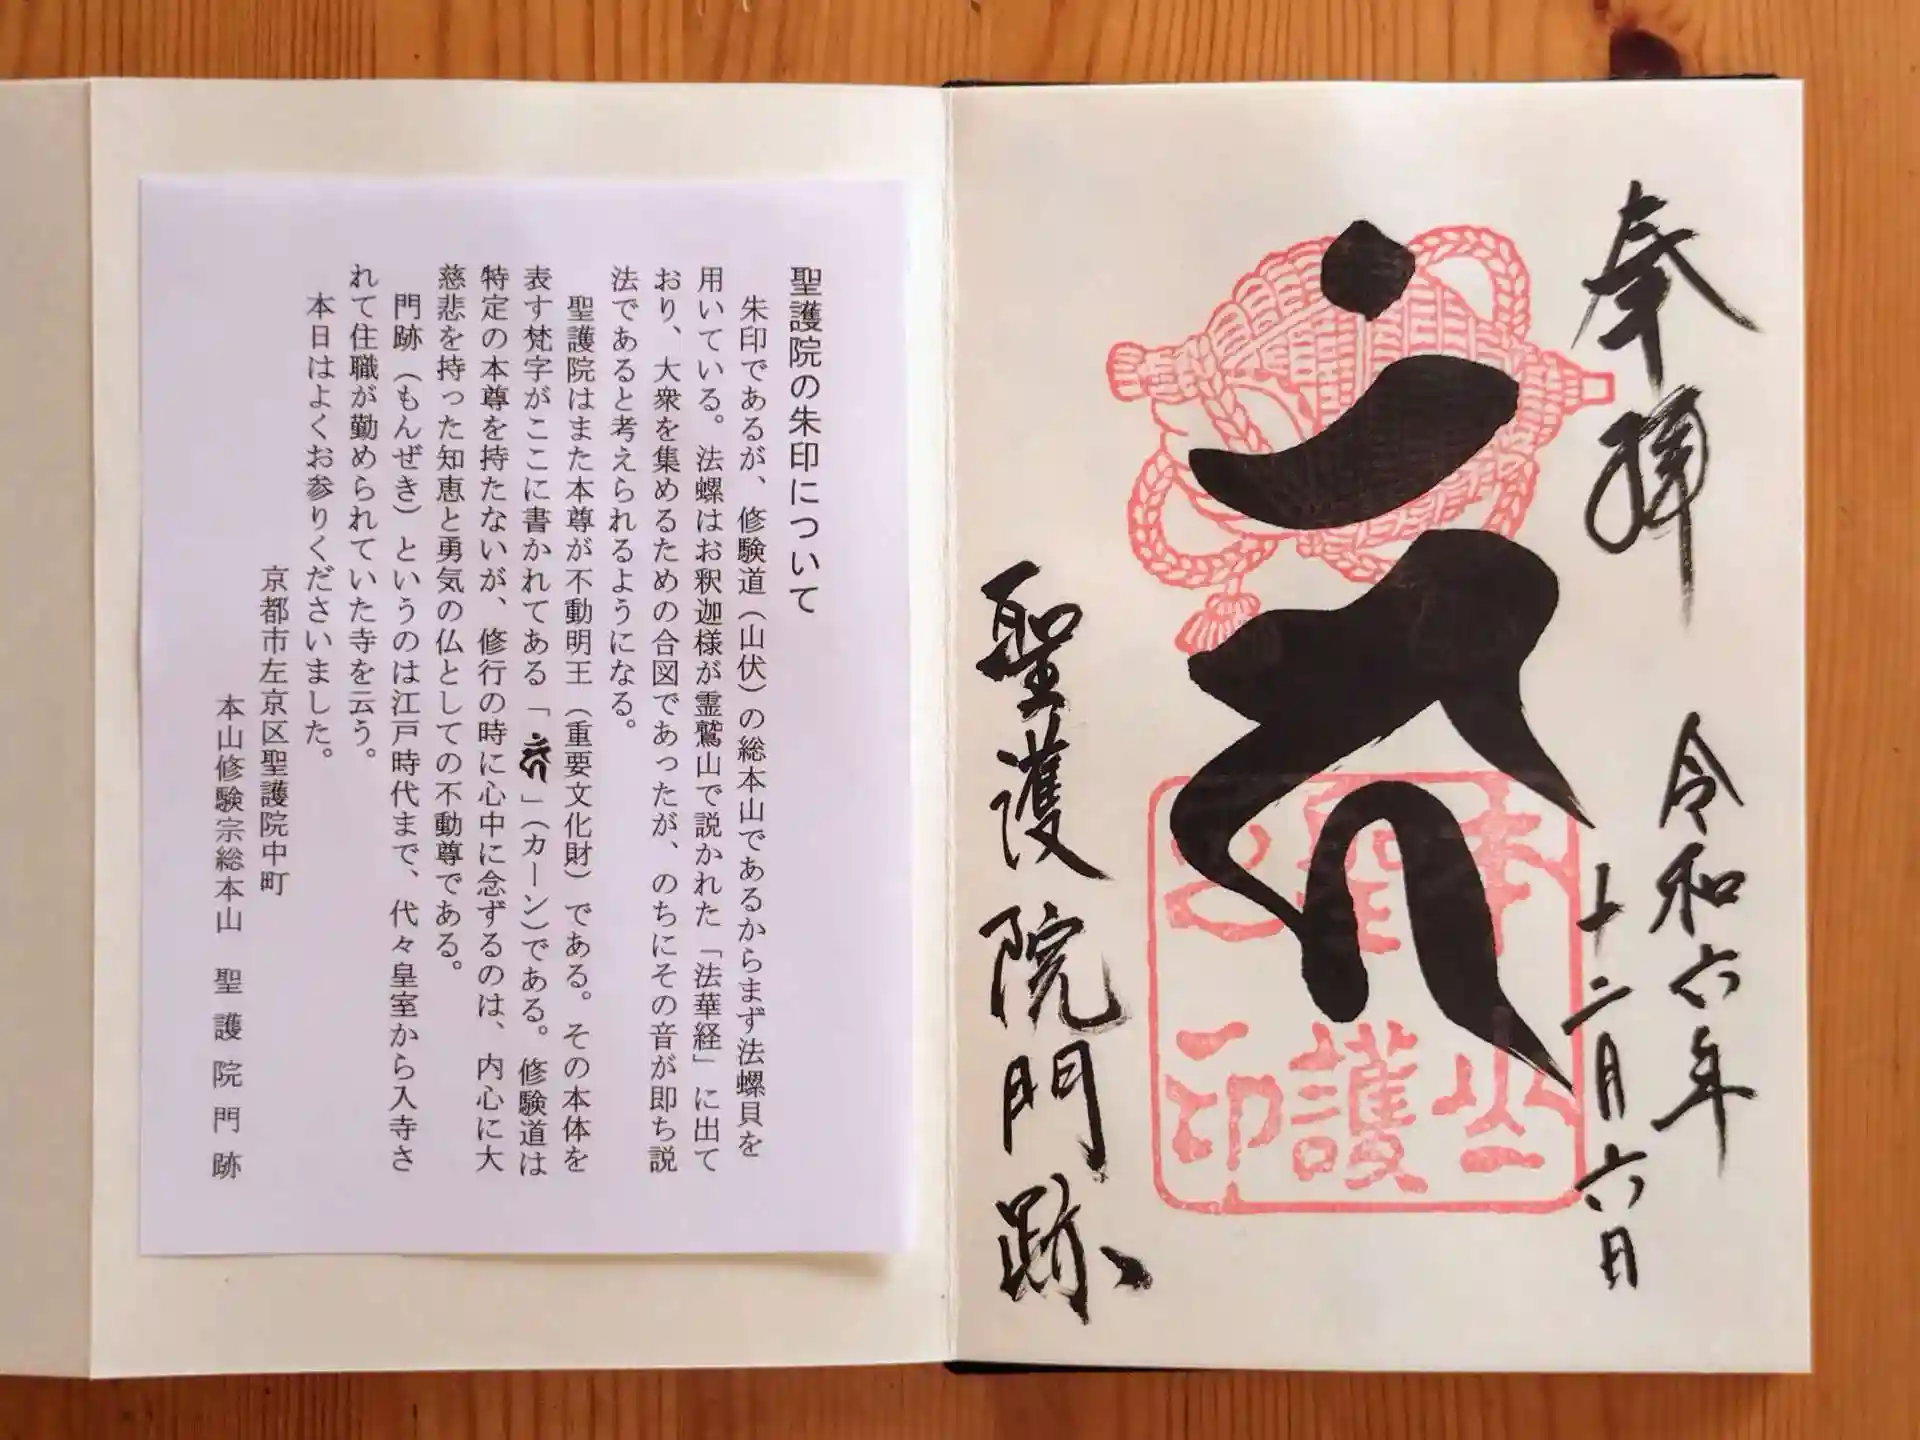 奉拝
令和六年
十二月六日
𑖮𑖿𑖦𑖯𑖽
本山
聖護
之印
聖護院門跡
聖護院の朱印について
朱印であるが、修験道（山伏）の総本山であるからまず法螺貝を
用いている。法螺はお釈迦様が霊鷲山で説かれた「法華経」に出て
おり、大衆を集めるための合図であったが、のちにその音が即ち説
法であると考えられるようになる。
聖護院はまた本尊が不動明王（重要文化財）である。その本体を
表す梵字がここに書かれてある「𑖮𑖿𑖦𑖯𑖽」（カーン）である。修験道は
特定の本尊を持たないが、修行の時に心中に念ずるのは、内心に大
慈悲を持った知恵と勇気の仏としての不動尊である。
門跡（もんぜき）というのは江戸時代まで、代々皇室から入寺さ
れて住職が勤められていた寺を云う。
本日はよくお参りくださいました。
京都市左京区聖護院中町
本山修験宗総本山　聖護院門跡